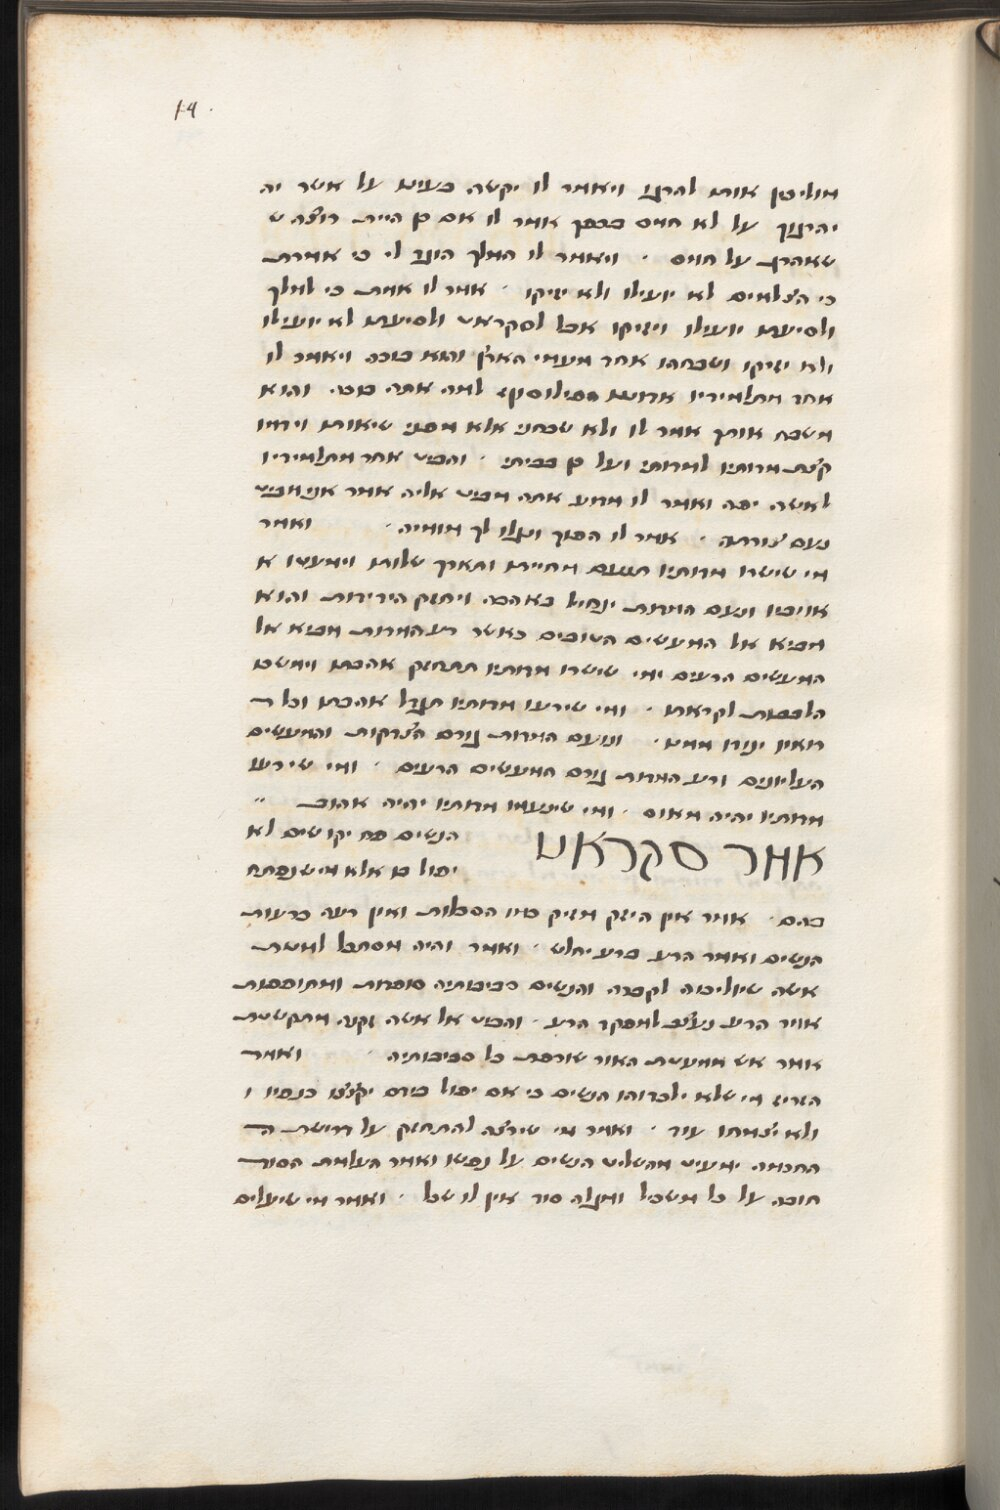 14
מוליכין אותו להרגו ויאמר לו יקשה בעינ על אשר יה
יהרגוך על לא חמס בכפך אמר לו אם כן היית רוצה ש
שאהרג על חמס · ויאמר לו המלך הוגד לי כי אמרת
כי הצלמים לא יועילו ולא יזיקו · אמר לו אמת כי למלך
ולסיעתו יועילו ויזיקו אבל לסקראט ולסיעתו לא יועילו
ולא יזיקו ושבחהו אחד מעמי הארץ והוא בוכה ויאמר לו
אחד מתלמידיו אדונינו הפילוסוף למה אתה בוכה והוא
משבח אותך אמר לו ולא שבחני אלא מפני שיאותו וידמו
קצת מדותיו למדותי ועל כן בכיתי · והביט אחד מתלמידיו
לאשה יפה ואמר לו מדוע אתה מביט אליה אמר אני מביט
נועם צורתה · אמר לו הפוך ויגלו לך מומיה · ואמר
מי שישרו מדותיו תנעם מחייתו ותארך שלותו וימעטו א
אויביו ונעם המדות ינחיל באהבה ויחזק הידידות והוא
מביא אל המעשים הטובים כאשר רע המדות מביא אל
המעשים הרעים ומי שישרו מדותיו תתחזק אהבתו וימשכו
הלבבות לקראתו · ומי שירעו מדותיו תגדל אהבתו וכל ר
רואיו ינודו ממנו · ונועם המדות גורם הצדקות והמעשים
העליונים ורע המדות גורם המעשים הרעים · ומי שירעו
מדותיו יהיה מאוס · ומי שינעמו מדותיו יהיה אהוב
אמר סקראט הנשים פח יקושים לא
יפול בו אלא מי שנפתה
בהם · אמר אין היזק מזיק כמו הסכלות ואין רעה כרעות
הנשים ואמר הרע ברע יחלש · ואמר והיה מסתכל למטת
אשה שיוליכוה לקברה והנשים סביבותיה סופדות ומתופפות
אמר הרע נעצב למפקד הרע · והביט אל אשה זקנה מתקשטת
אמר אש ממעטת האור שורפת כל סביבותיה · ואמר
הזריז מי שלא ילכדוהו הנשים כי אם יפול בידם יקצצו כנפיו ו
ולא יצמחו עוד · ואמר מי שירצה להתחזק על דרישת ה
החכמה ימעיט מהשליט הנשים על נפשו ואמר העלמת הסוד
חובה על כל משכיל ומגלה סוד אין לו שכל · ואמר מי שיעלים